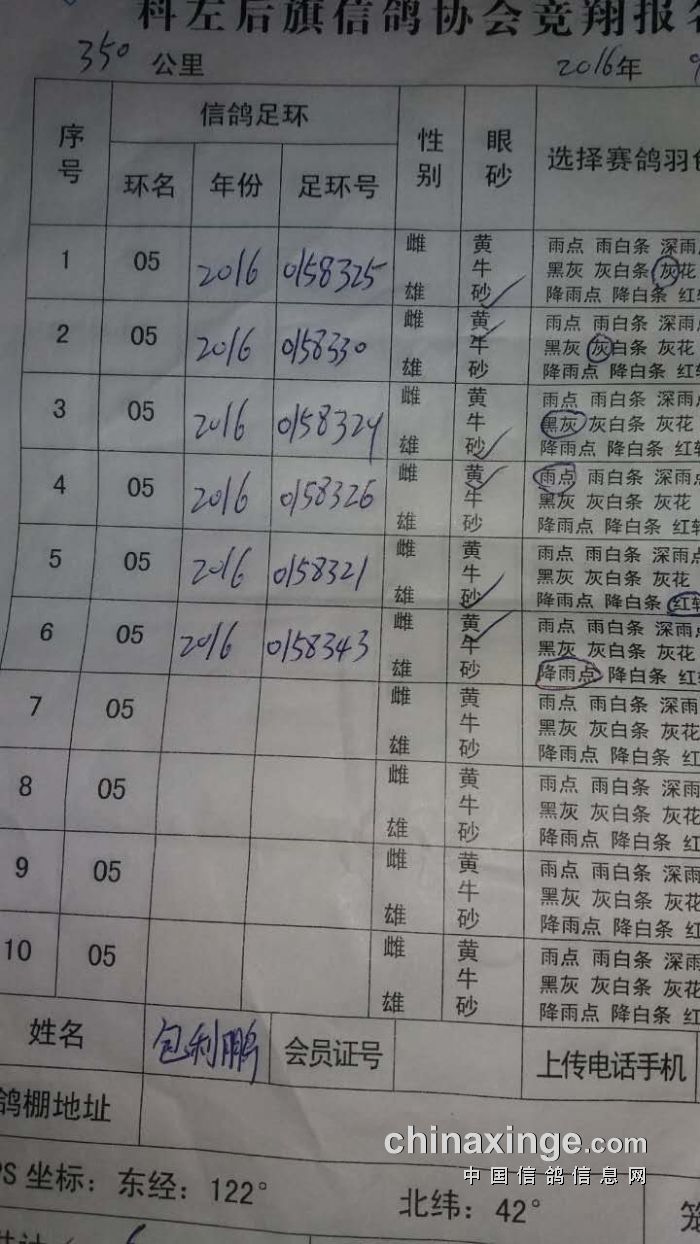 科左后旗信鸽协会竞翔报名
350 公里 2016年
序号 信鸽足环 性别 眼砂 选择赛鸽羽色
环名 年份 足环号
1 05 2016 0158325 雌 雄 黄 牛 砂✓
雨点 雨白条 深雨点
黑灰 灰白条 灰花
降雨点 降白条 红轮
2 05 2016 0158330 雌 雄 黄✓ 牛 砂
雨点 雨白条 深雨点
黑灰 灰白条 灰花
降雨点 降白条 红轮
3 05 2016 0158324 雌 雄 黄 牛 砂✓
雨点 雨白条 深雨点
黑灰 灰白条 灰花
降雨点 降白条 红轮
4 05 2016 0158326 雌 雄 黄✓ 牛 砂
雨点 雨白条 深雨点
黑灰 灰白条 灰花
降雨点 降白条 红轮
5 05 2016 0158321 雌 雄 黄 牛 砂✓
雨点 雨白条 深雨点
黑灰 灰白条 灰花
降雨点 降白条 红轮
6 05 2016 0158343 雌 雄 黄✓ 牛 砂
雨点 雨白条 深雨点
黑灰 灰白条 灰花
降雨点 降白条 红
7 05 雌 雄 黄 牛 砂
雨点 雨白条 深雨
黑灰 灰白条 灰花
降雨点 降白条 红
8 05 雌 雄 黄 牛 砂
雨点 雨白条 深雨
黑灰 灰白条 灰花
降雨点 降白条 红
9 05 雌 雄 黄 牛 砂
雨点 雨白条 深雨
黑灰 灰白条 灰花
降雨点 降白条 红
10 05 雌 雄 黄 牛 砂
雨点 雨白条 深雨
黑灰 灰白条 灰花
降雨点 降白条 红
姓名 包利鹏 会员证号 上传电话手机
鸽棚地址
chinaxinge.com
中国信鸽信息网
PS 坐标：东经：122° 北纬：42° 笼
共计 6